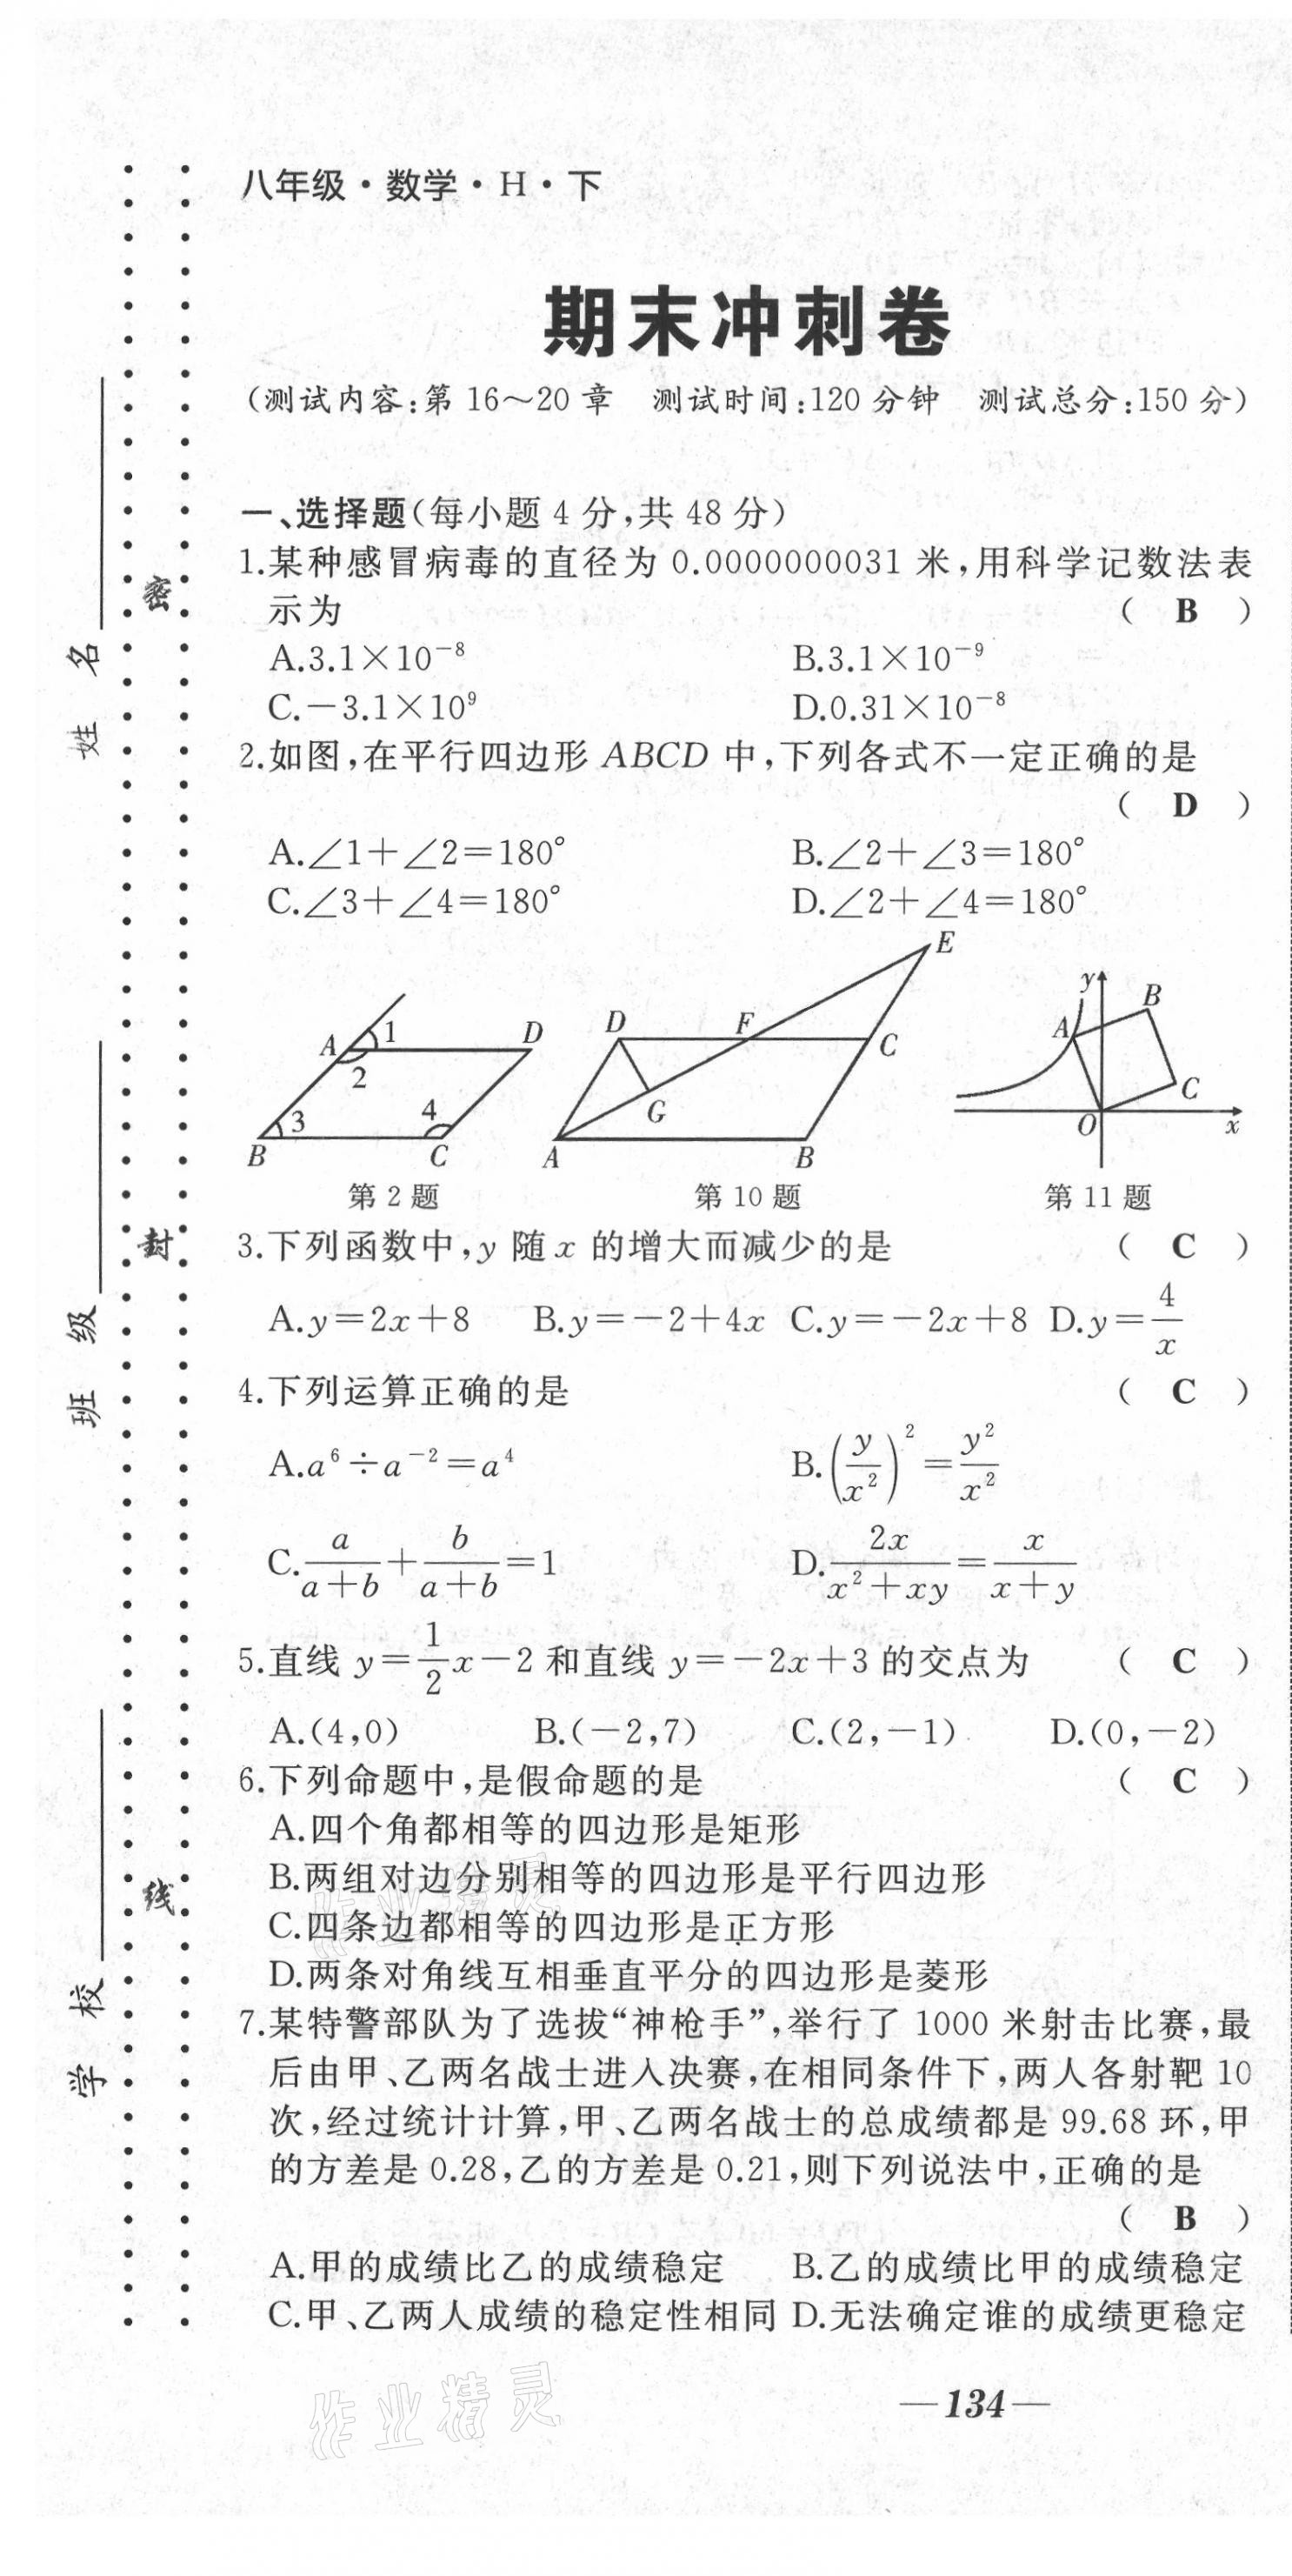 八年级·数学·H·下
期末冲刺卷
(测试内容:第 16～20 章 测试时间:120 分钟 测试总分:150 分)
一、选择题(每小题 4 分,共 48 分)
1.某种感冒病毒的直径为 0.0000000031 米,用科学记数法表
示为 ( B )
A.3.1×10⁻⁸ B.3.1×10⁻⁹
C.－3.1×10⁹ D.0.31×10⁻⁸
2.如图,在平行四边形 ABCD 中,下列各式不一定正确的是
( D )
A.∠1＋∠2＝180° B.∠2＋∠3＝180°
C.∠3＋∠4＝180° D.∠2＋∠4＝180°
A 1 D 2 3 4 B C
D F E C G A B
y B A C O x
第 2 题 第 10 题 第 11 题
3.下列函数中,y 随 x 的增大而减少的是 ( C )
A.y＝2x＋8 B.y＝－2＋4x C.y＝－2x＋8 D.y＝4/x
4.下列运算正确的是 ( C )
A.a⁶÷a⁻²＝a⁴ B.(y/x²)²＝y²/x²
C.a/(a＋b)＋b/(a＋b)＝1 D.2x/(x²＋xy)＝x/(x＋y)
5.直线 y＝1/2x－2 和直线 y＝－2x＋3 的交点为 ( C )
A.(4,0) B.(－2,7) C.(2,－1) D.(0,－2)
6.下列命题中,是假命题的是 ( C )
A.四个角都相等的四边形是矩形
B.两组对边分别相等的四边形是平行四边形
C.四条边都相等的四边形是正方形
D.两条对角线互相垂直平分的四边形是菱形
7.某特警部队为了选拔“神枪手”,举行了 1000 米射击比赛,最
后由甲、乙两名战士进入决赛,在相同条件下,两人各射靶 10
次,经过统计计算,甲、乙两名战士的总成绩都是 99.68 环,甲
的方差是 0.28,乙的方差是 0.21,则下列说法中,正确的是
( B )
A.甲的成绩比乙的成绩稳定 B.乙的成绩比甲的成绩稳定
C.甲、乙两人成绩的稳定性相同 D.无法确定谁的成绩更稳定
—134—
学 校
班 级
姓 名
密
封
线
作业精灵
作业精灵